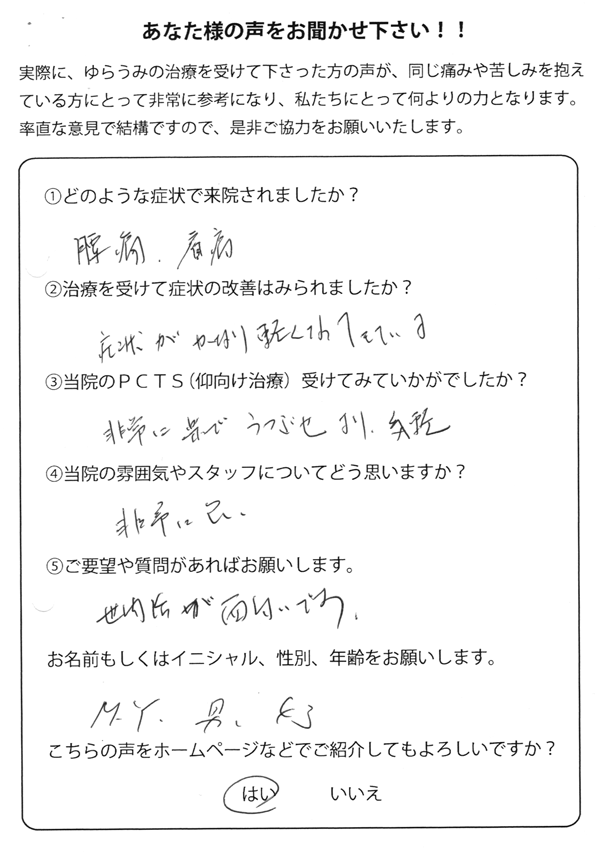 あなた様の声をお聞かせ下さい！！
実際に、ゆらうみの治療を受けて下さった方の声が、同じ痛みや苦しみを抱え
ている方にとって非常に参考になり、私たちにとって何よりの力となります。
率直な意見で結構ですので、是非ご協力をお願いいたします。
①どのような症状で来院されましたか？
腰痛、肩痛
②治療を受けて症状の改善はみられましたか？
症状がかなり軽くなってきている
③当院のＰＣＴＳ（仰向け治療）受けてみていかがでしたか？
非常に楽で うつぶせより、気軽
④当院の雰囲気やスタッフについてどう思いますか？
非常に良い
⑤ご要望や質問があればお願いします。
が面白いです。
お名前もしくはイニシャル、性別、年齢をお願いします。
M.Y. 男、
こちらの声をホームページなどでご紹介してもよろしいですか？
はい いいえ